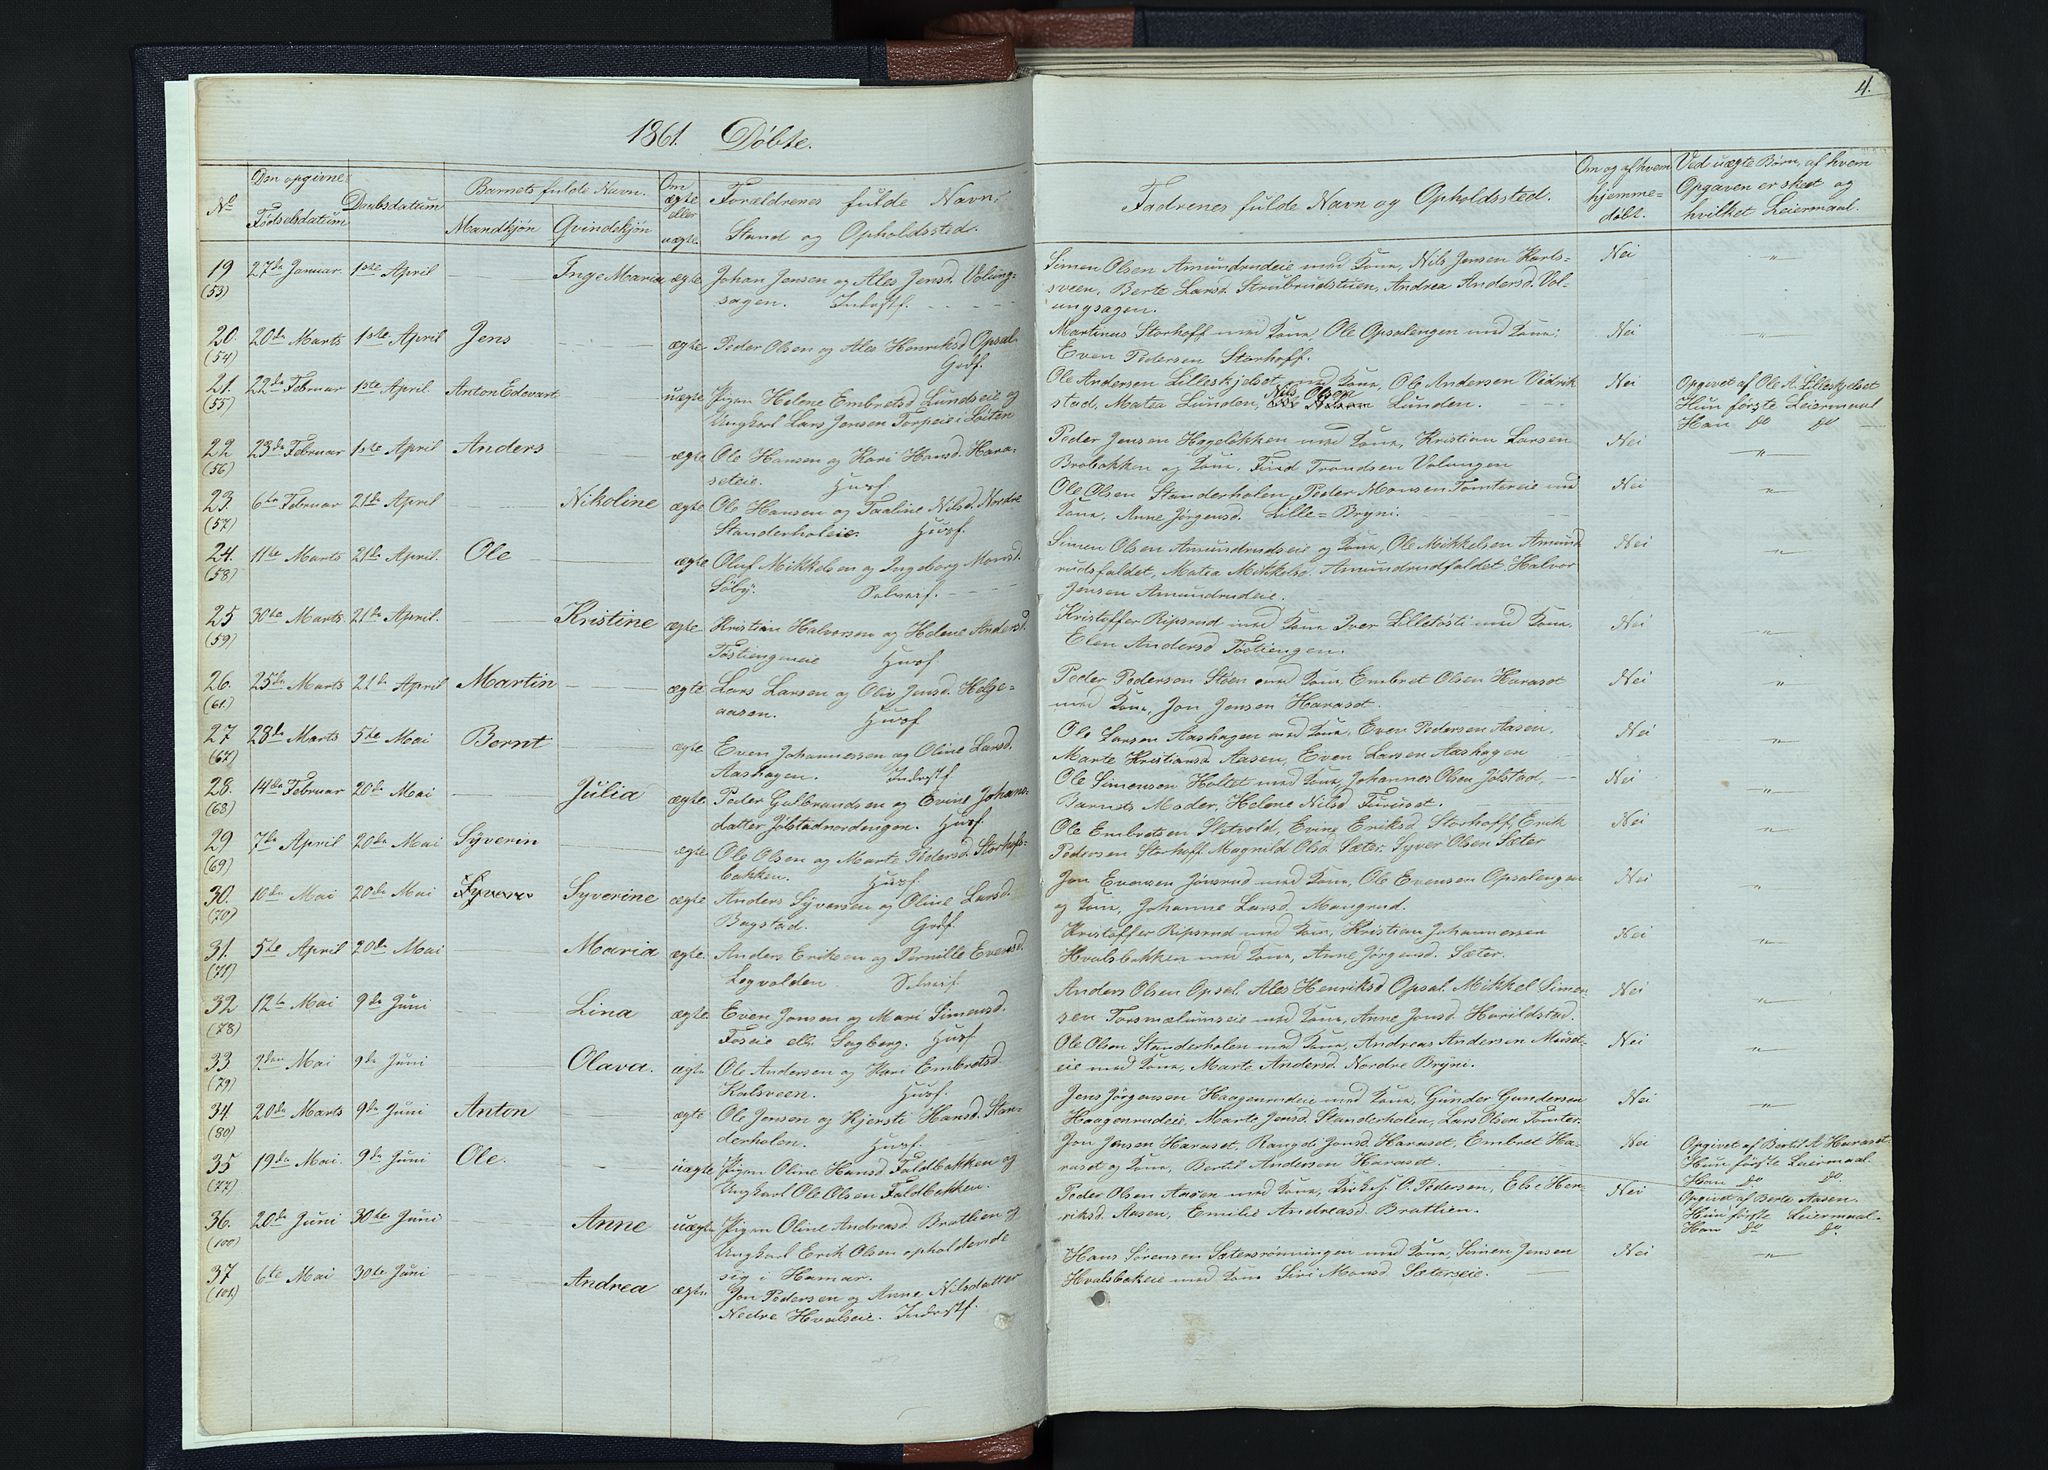 1861. Döbte.
4.
No
Den opgivne Fødselsdatum
Daabsdatum
Barnets fulde Navn.
Mandkjøn
Qvindekjøn
Om ægte eller uægte
Forældrenes fulde Navn, Stand og Opholdssted.
Fadrenes fulde Navn og Opholdssted.
Om og af hvem hjemmedøbt.
Ved uægte Børn, af hvem Opgaven er skeet og hvilket Leiermaal.
19 27de Januar 1ste April Inge Maria ægte Johan Jensen og Ales Jensd. Volung-
(53) sagen. Inderstf.
Simen Olsen Amundrudeie med Kone, Nils Jensen Karls- Nei "
sveen, Berte Larsd. Strubrudstuen, Andrea Andersd. Vol-
ungsagen.
20. 20de Marts 1ste April Jens ægte Peder Olsen og Ales Henriksd Opsal.
(54) Grdf.
Martinus Storhoff med Kone, Ole Opsalengen med Kone, Nei "
Even Pedersen Storhoff.
21. 22de Februar 1ste April. Anton Edevart uægte Pigen Helene Embretsd Lundseie og
(55) Ungkarl Lars Jensen Torpeie i Løiten
Ole Andersen Lilleskjelset med Kone, Ole Andersen Vidrik Nei Opgivet af Ole A. Lilleskjelset
stad, Matea Lunden, Nils Olsen Lunden. Hun første Leiermaal
Han do do
22 23de Februar 1ste April Anders ægte Ole Hansen og Kari Hansd. Hara-
(56) seteie. Husf.
Peder Jensen Hageløkken med Kone, Kristian Larsen Nei "
Brobakken og Kone, Find Trondsen Volungen
23. 6te Februar 21de April Nikoline ægte Ole Hansen og Taaline Nilsd. Nordre
(57) Standerholeie. Husf.
Ole Olsen Standerholen, Peder Monsen Tomtereie med Nei "
Kone, Anne Jørgensd. Lille-Bryni.
24. 11te Marts 21de April. Ole ægte Oluf Mikkelsen og Ingeborg Monsd.
(58) Søby. Selveif.
Simen Olsen Amundrudseie og Kone, Ole Mikkelsen Amund Nei "
rudsfaldet, Matea Mikkelsd. Amundrudfaldet, Halvor
Jensen Amundrudeie.
25 30te Marts. 21de April. Kristine ægte Kristian Halvorsen og Helene Andersd.
(59) Tøstiengneie Husf.
Kristoffer Ripsrud med Kone Iver Lilletøsti med Kone, Nei "
Elen Andersd Tostiengen.
26. 25de Marts 21de April Martin ægte Lars Larsen og Oliv Jensd. Helge-
(61) aasen. Husf
Peder Pedersen Steen med Kone Embret Olsen Haraset Nei "
med Kone, Jon Jensen Haraset.
27 28de Marts 5te Mai Bernt ægte. Even Johannessen og Oline Larsd.
(67) Aashagen. Inderstf
Ole Larsen Aashagen med Kone, Even Pedersen Aasen, Nei "
Marte Kristiansd Aasen, Even Larsen Aashagen
28. 14de Februar 20de Mai Julia ægte. Peder Gulbrandsen og Evine Johans
(68) datter Jølstadnordengen. Husf.
Ole Simensen Holtet med Kone, Johannes Olsen Jølstad Nei "
Barnets Moder, Helene Nilsd Furuset.
29 7de April 20de Mai Syverin ægte Ole Olsen og Marte Pedersd. Storhofs-
(69) bakken. Husf.
Ole Embretsen Sktvold, Evine Eriksd. Storhoff, Erik Nei "
Pedersen Storhoff Magnild Olsd. Sæter, Syver Olsen Sæter
30. 10de Mai 20de Mai Syverine ægte Anders Syversen og Oline Larsd.
(70) Bagstad. Grdf.
Jon Evensen Jønsrud med Kone, Ole Evensen Opsalengen Nei "
og Kone, Johanne Larsd. Mangrud.
31. 5te April 20de Mai Maria ægte. Anders Eriksen og Pernille Evensd.
(71) Legvolden. Selveif.
Kristoffer Ripsrud med Kone, Kristian Johannessen Nei "
Hvalsbakken med Kone, Anne Jørgensd. Sæter.
32 12te Mai 9de Juni Lina ægte. Even Jonsen og Mari Simensd.
(78) Foseie ell. Sagberg. Husf
Anders Olsen Opsal, Ales Henriksd Opsal, Mikkel Simen- Nei "
sen Torsmælumseie med Kone, Anne Jonsd. Harildstad.
33 2den Mai 9de Juni Olava. ægte Ole Andersen og Kari Embretsd
(79) Kalsveen. Husf.
Ole Olsen Standerholen med Kone, Andreas Andersen Muset- Nei "
eie med Kone, Marte Andersd. Nordre Bryni.
34. 20de Marts 9de Juni Anton ægte Ole Jensen og Kjersti Hansd. Stan-
(80) derholen. Husf.
Jens Jørgensen Haagenrudeie med Kone, Gunder Gundersen Nei "
Haagenrudeie, Marte Jensd. Standerholen, Lars Olsen Tomter.
35 19de Mai. 9de Juni Ole. uægte Pigen Oline Hansd. Faldbakken og
(77) Ungkarl Ole Olsen Faldbakken.
Jon Jensen Haraset, Rangdi Jonsd. Haraset, Embret Ha- Nei Opgivet af Bertil A Haraset.
raset og Kone, Bertil Andersen Haraset. Hun første Leiermaal.
Han do do.
36. 20de Juni 30te Juni Anne uægte Pigen Oline Andreasd. Bratlien og
(100) Ungkarl Erik Olsen opholdende
sig i Hamar.
Peder Olsen Aasen med Kone, Kirkes. O. Pedersen, Else Hen- Nei Opgivet af Berte Aasen.
riksd. Aasen, Emilie Andreasd. Bratlien. Hun første Leiermaal.
Han do do.
37 6te Mai 30te Juni Andrea ægte. Jon Pedersen og Anne Nilsdatter
(101) Nedre Hvalseie. Inderstf.
Hans Sørensen Sætersrønningen med Kone, Simen Jensen Nei "
Hvalsbakeie med Kone Siri Monsd. Sæterseie.